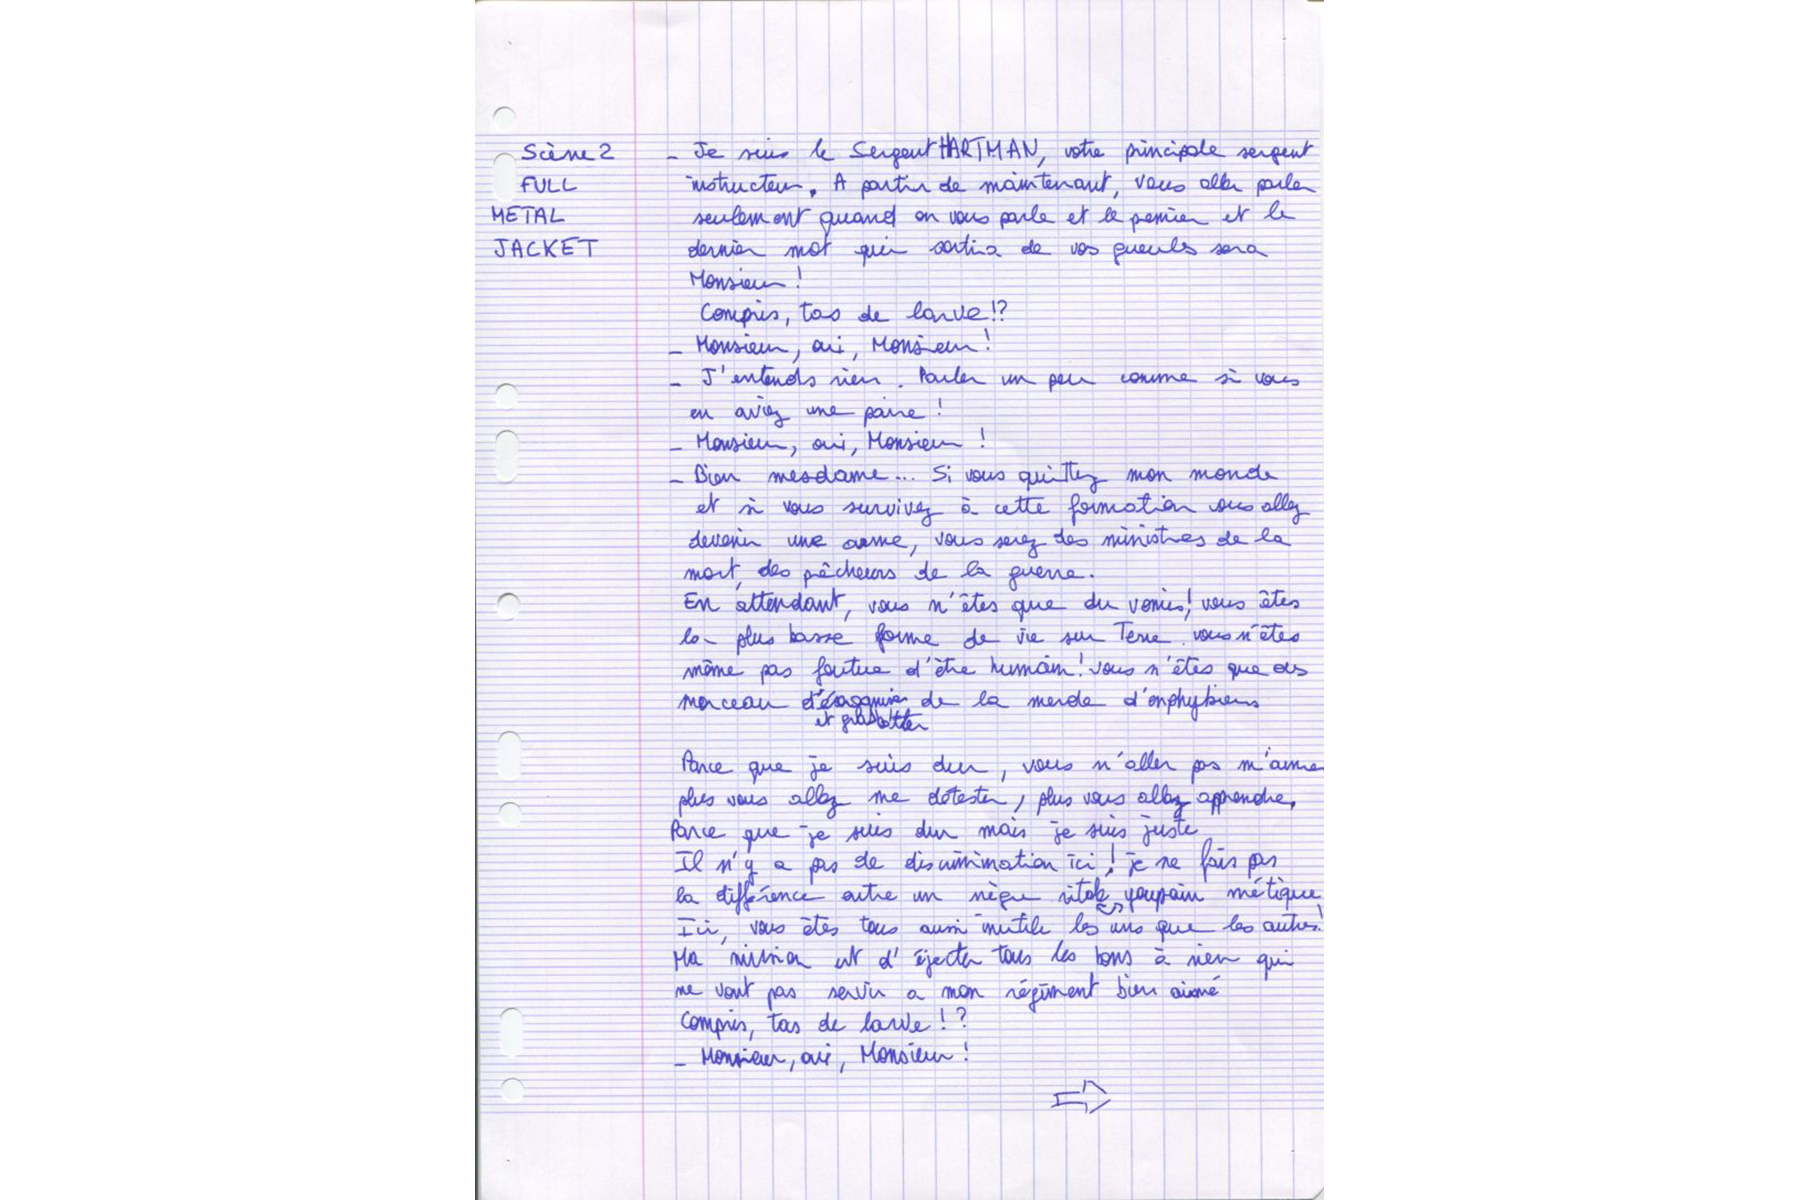 Scène 2
FULL
METAL
JACKET
- Je suis le Sergent HARTMAN, votre principale sergent
instructeur. A partir de maintenant, vous aller parler
seulement quand on vous parle et le pemier et le
dernier mot qui sortira de vos gueules sera
Monsieur !
Compris, tas de larve !?
- Monsieur, oui, Monsieur !
- J'entends rien. Parler un peu comme si vous
en aviez une paire !
- Monsieur, oui, Monsieur !
- Bien mesdame... Si vous quittez mon monde
et si vous survivez à cette formation vous allez
devenir une arme, vous serez des ministres de la
mort, des pêcheurs de la guerre.
En attendant, vous n'êtes que du vomis! vous êtes
la plus basse forme de vie sur Terre vous n'êtes
même pas foutue d'être humain! vous n'êtes que des
morceau de la merde d'enphybiens
Parce que je suis dur, vous n'aller pas m'aimer
plus vous allez me detester, plus vous allez apprendre.
Parce que je suis dur mais je suis juste
Il n'y a pas de discrimination ici ! je ne fais pas
la différence entre un nègre ritale youpain métique
Ici, vous êtes tous aussi inutile les uns que les autres!
Ma mission est d'éjecter tous les bons à rien qui
ne vont pas servir a mon régiment bien aimé
Compris, tas de larve ! ?
- Monsieur, oui, Monsieur !